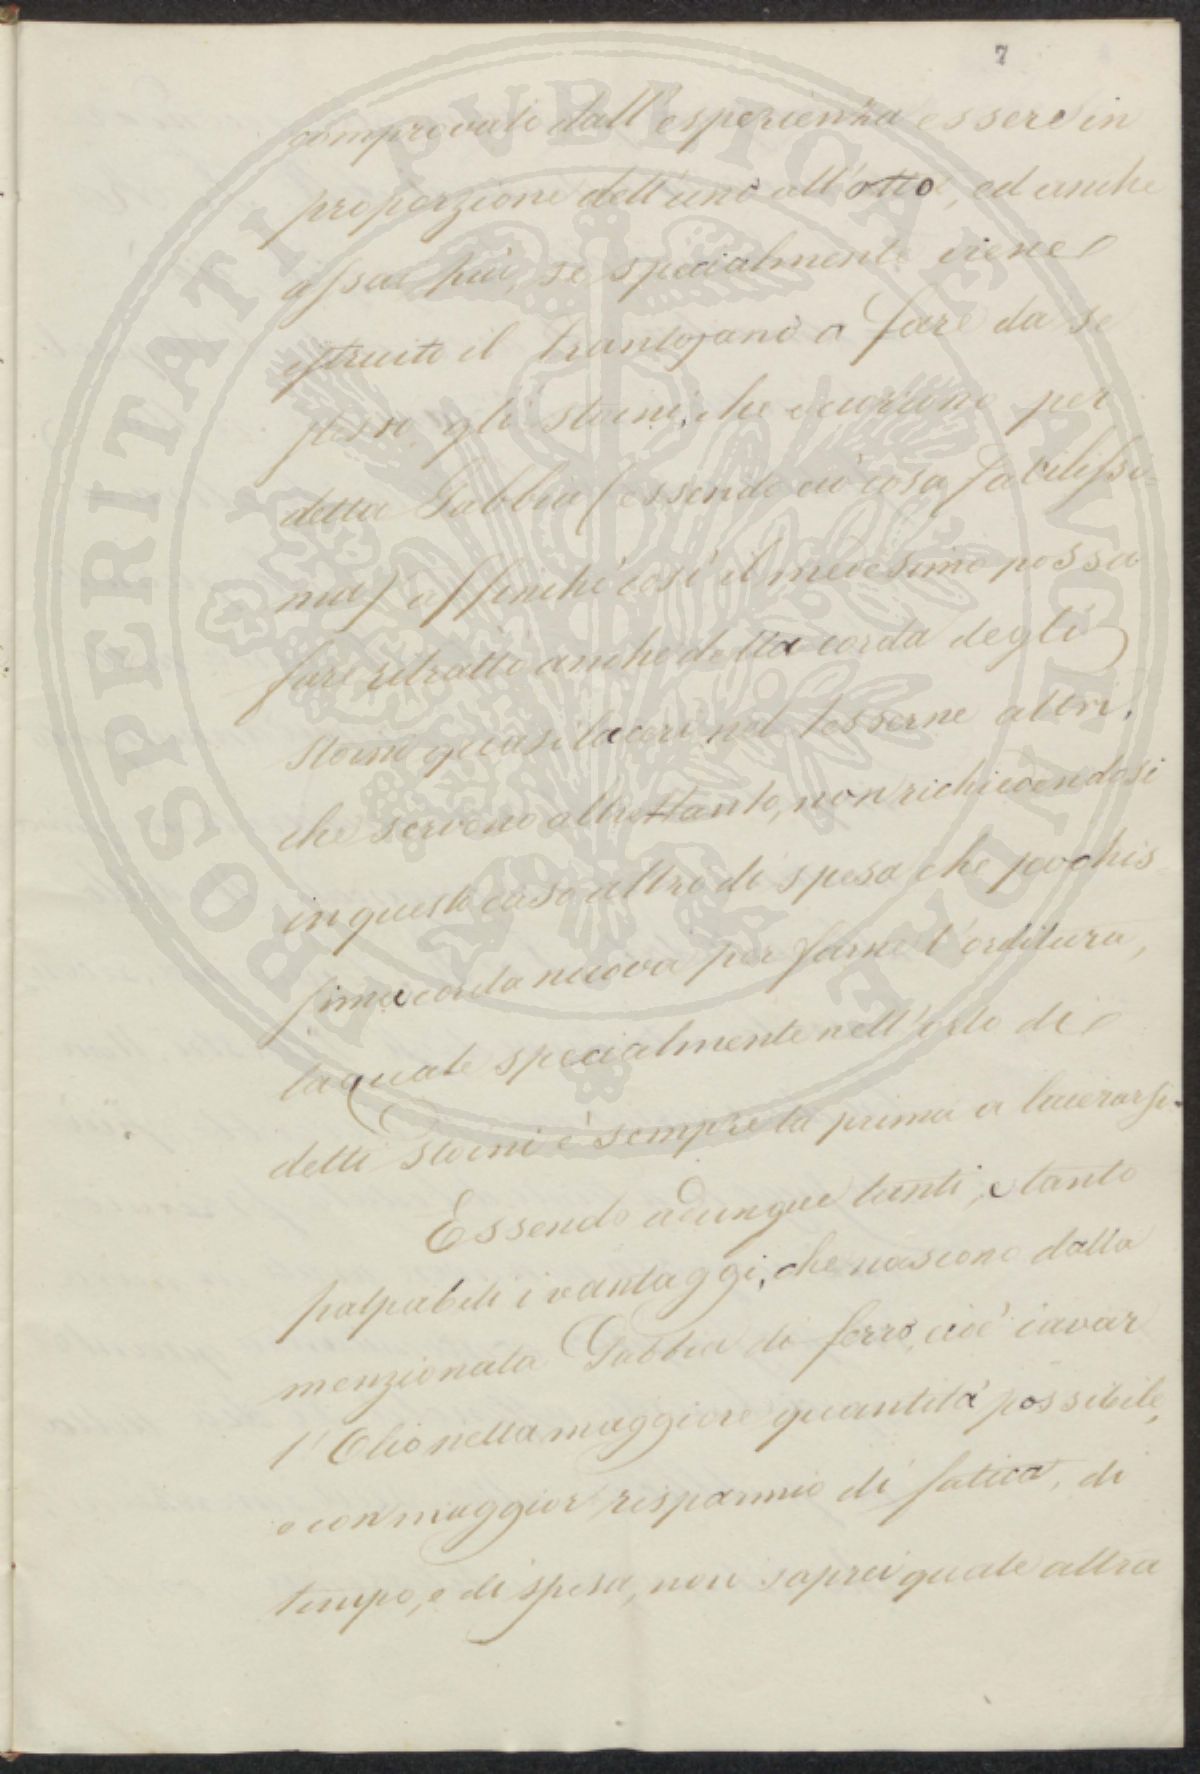 7
comprovato dall'esperienza essere in
proporzione dell'uno all'otto, ed anche
assai più, se specialmente viene
istruito il Frantojano a fare da se
stesso gli stoini, che occorrono per
detta Gabbia (essendo ciò cosa facilissi-
ma) affinchè così il medesimo possa
fare ritratto anche della corda degli
stoini quasi laceri nel tesserne altri,
che servono altrettanto, non richiedendosi
in questo caso altro di spesa che pochis-
sima corda nuova per farne l'orditura,
la quale specialmente nell'orlo di
detti stoini è sempre la prima a lacerarsi.
Essendo adunque tanti, e tanto
palpabili i vantaggi, che nascono dalla
menzionata Gabbia di ferro, cioè cavar
l'Olio nella maggiore quantità possibile,
e con maggior risparmio di fatica, di
tempo, e di spesa, non saprei quale altra
PROSPERITATI PVBLICAE AVGENDAE